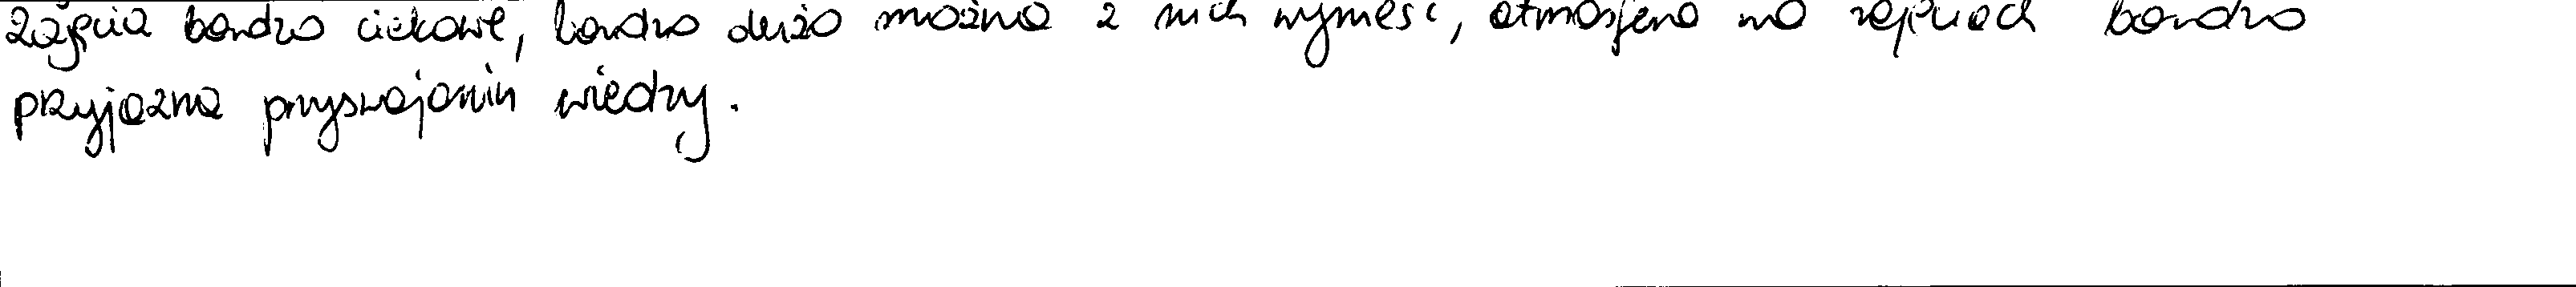 Zajęcia bardzo ciekawe, bardzo dużo można z nich wynieść, atmosfera na zajęciach bardzo
przyjazna przyswajaniu wiedzy.